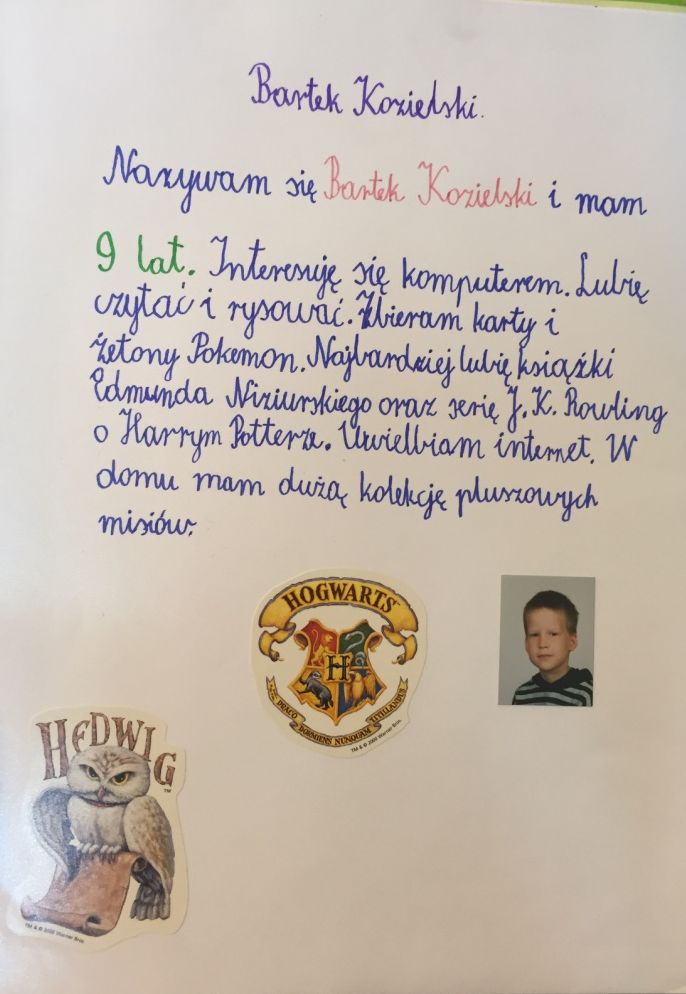 Bartek Kozielski.
Nazywam się Bartek Kozielski i mam
9 lat. Interesuję się komputerem. Lubię
czytać i rysować. Zbieram karty i
żetony Pokemon. Najbardziej lubię książki
Edmunda Niziurskiego oraz serię J. K. Rowling
o Harrym Potterze. Uwielbiam internet. W
domu mam dużą kolekcję pluszowych
misiów.
HOGWARTS
H
DRACO DORMIENS NUNQUAM TITILLANDUS
TM & © 2000 Warner Bros.
HEDWIG
TM
TM & © 2000 Warner Bros.